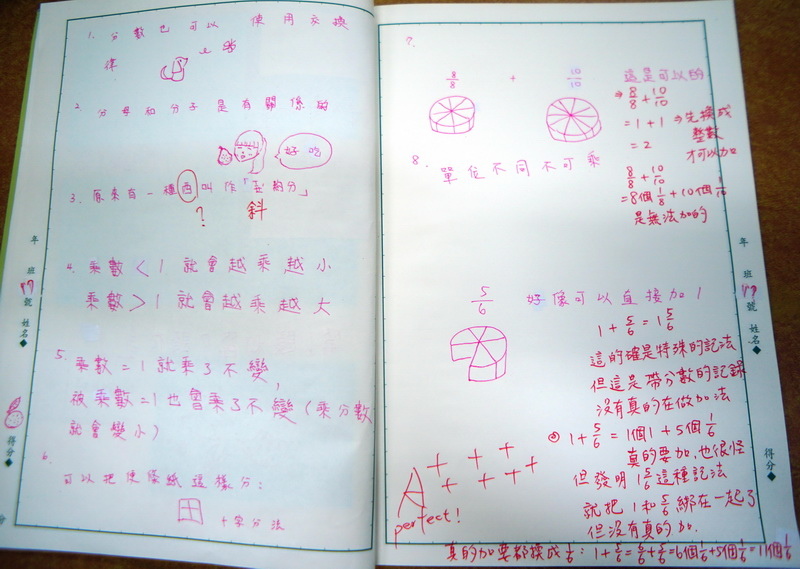 1. 分數也可以使用交換
律
2. 分母和分子是有關係的
好吃
3. 原來有一種西叫作「玉約分」
?
斜
4. 乘數<1就會越乘越小
乘數>1就會越乘越大
5. 乘數=1就乘了不變,
被乘數=1也會乘了不變(乘分數
就會變小)
6.
可以把便條紙這樣分:
十字分法
年
班
17 號
姓名
得分
7.
8/8 + 10/10
這是可以的
⇒ 8/8 + 10/10
= 1 + 1 ⇒ 先換成
整數
= 2
才可以加
8. 單位不同不可乘
8/8 + 10/10
= 8個1/8 + 10個1/10
是無法加的
5/6 好像可以直接加1
1 + 5/6 = 1 5/6
這的確是特殊的記法
但這是帶分數的記錄
沒有真的在做加法
1 + 5/6 = 1個1 + 5個1/6
真的要加,也很怪
但發明1 5/6這種記法
就把1和5/6綁在一起了
但沒有真的加.
A + + + + + +
perfect!
真的加要都換成1/6: 1 + 5/6 = 6/6 + 5/6 = 6個1/6 + 5個1/6 = 11個1/6
年
班
17 號
姓名
得分